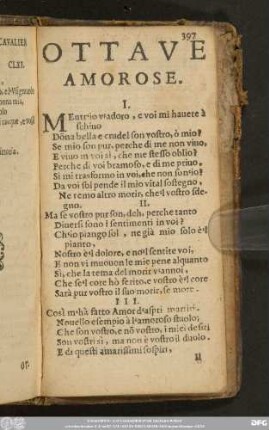 397
OTTAVE
AMOROSE.
I.
MEntr'io v'adoro, e voi mi hauete à
schiuo
Dōna bella e crudel son vostro, ò mio?
Se mio son pur, perche di me non viuo,
E viuo in voi sì, che me stesso oblio?
Perche di voi bramoso, e di me priuo,
Si mi trasformo in voi, che non son'io?
Da voi sol pende il mio vital sostegno,
Ne temo altro morir, che'l vostro sde-
gno.
II.
Ma se vostro pur son, deh, perche tanto
Diuersi sono i sentimenti in voi?
Ch'io piango sol, ne già mio solo è'l
pianto,
Nostro è'l dolore, e no'l sentite voi,
E non vi muouon le mie pene alquanto
Sì, che la tema del morir v'annoi,
Che se'l core hò ferito, e vostro è'l core
Sarà pur vostro il suo morir, se more.
III.
Così m'hà fatto Amor d'aspri martiri
Nouello esempio à l'amoroso stuolo;
Che son vostro, e nō vostro, i miei desiri
Son vostri sì, ma non è vostro il duolo.
E da questi amarissimi sospiri,
CAVALIER
CLXI.